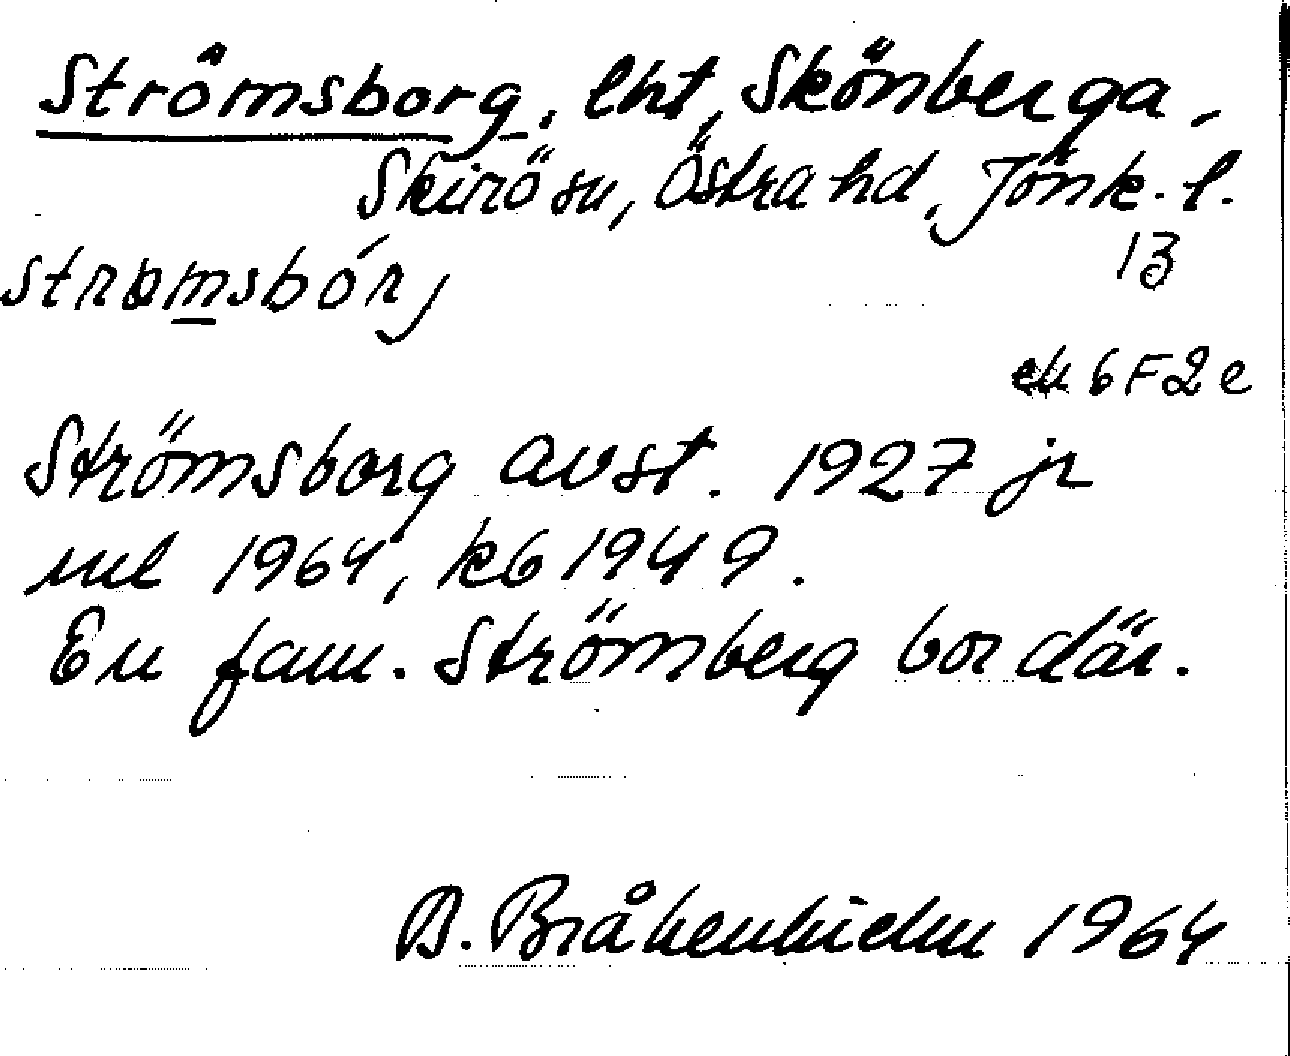 Strömsborg, lht, Skönberga,
Skirö sn, Östra hd, Jönk. l.
13
strömsbór,
ek 6F2e
Strömsborg avst. 1927 jr
ml 1964, kb 1949.
En fam. Strömberg bor där.
B. Bråkenhielm 1964